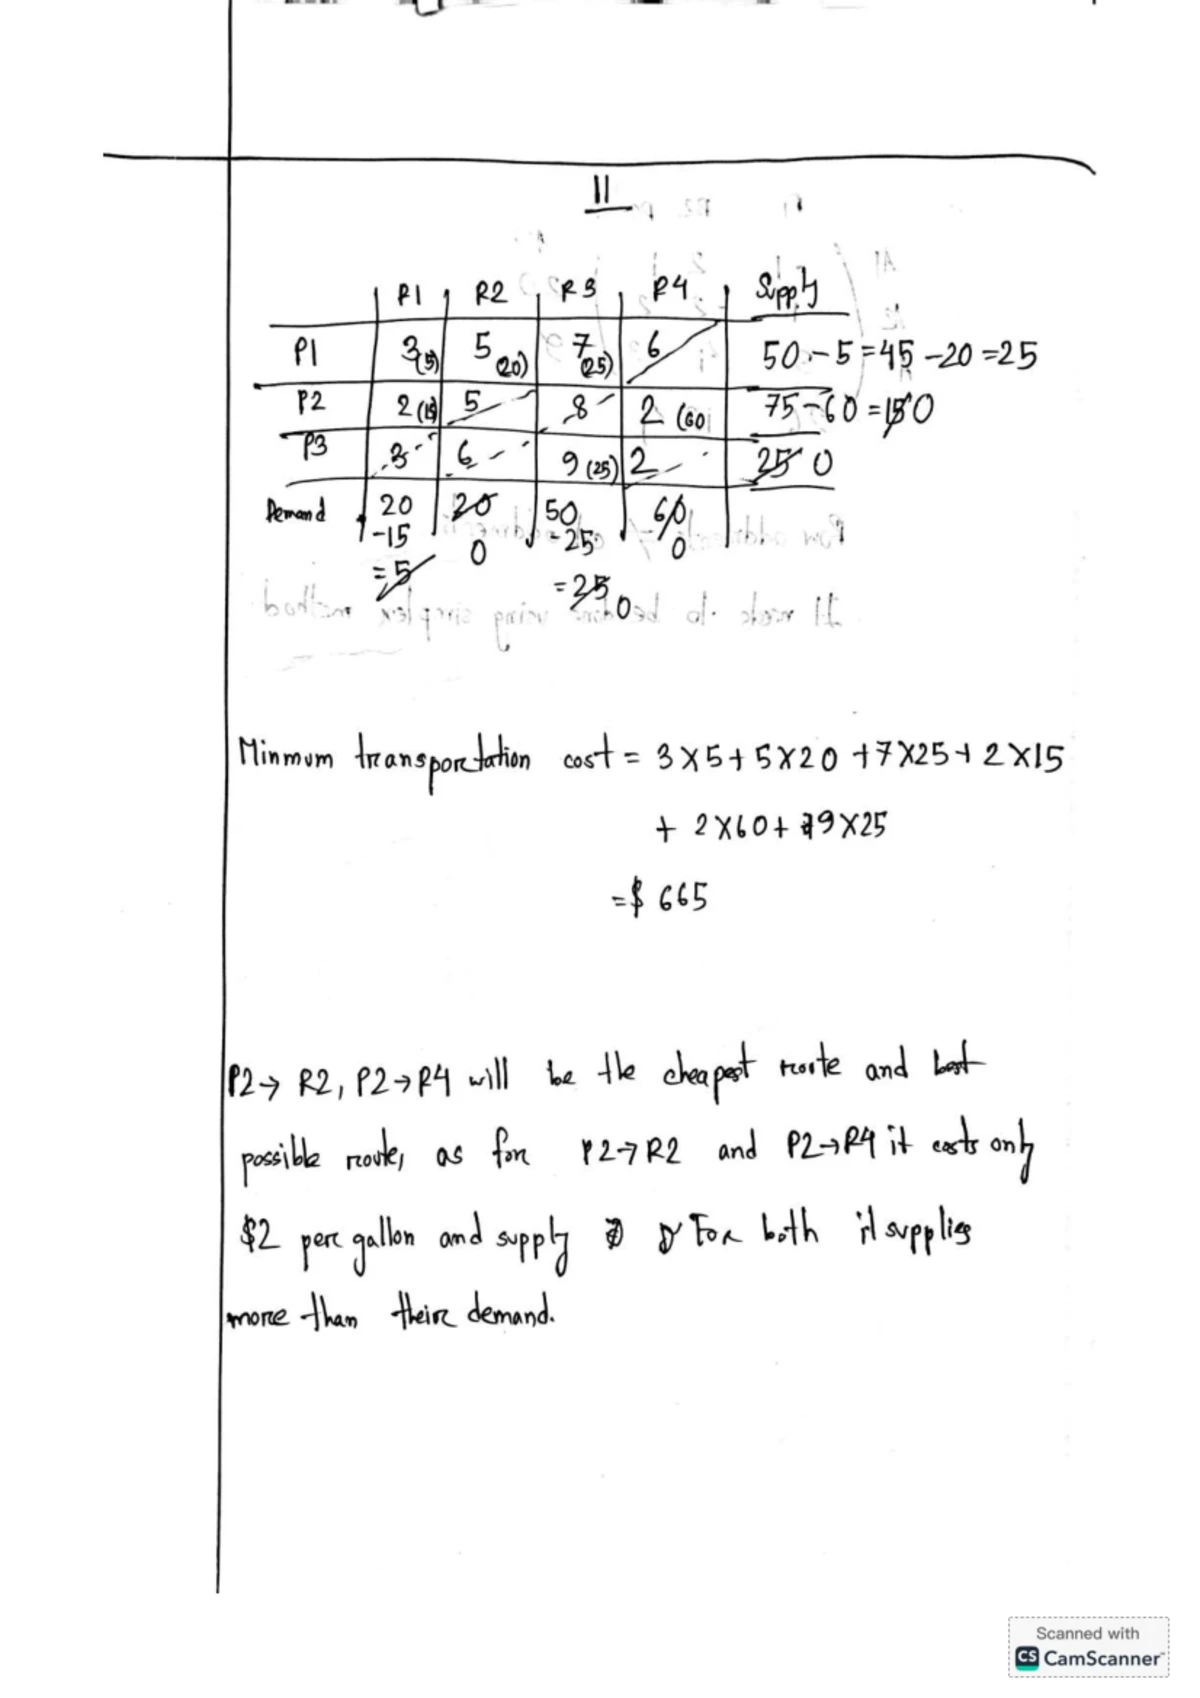 11
R1 R2 R3 R4 Supply
P1 3(5) 5(20) 7(25) 6 50 - 5 = 45 - 20 = 25
P2 2(15) 5 8 2(60) 75 - 60 = 15 0
P3 3 6 9(25) 2 25 0
Demand 20 20 50 60
-15 0 -25 0
=5 =25 0
Minmum transportation cost = 3×5 + 5×20 + 7×25 + 2×15
+ 2×60 + 9×25
= $ 665
P2→ R2, P2→R4 will be the cheapest route and best
possible route, as for P2→R2 and P2→R4 it costs only
$2 per gallon and supply For both it supplies
more than their demand.
Scanned with
CS CamScanner